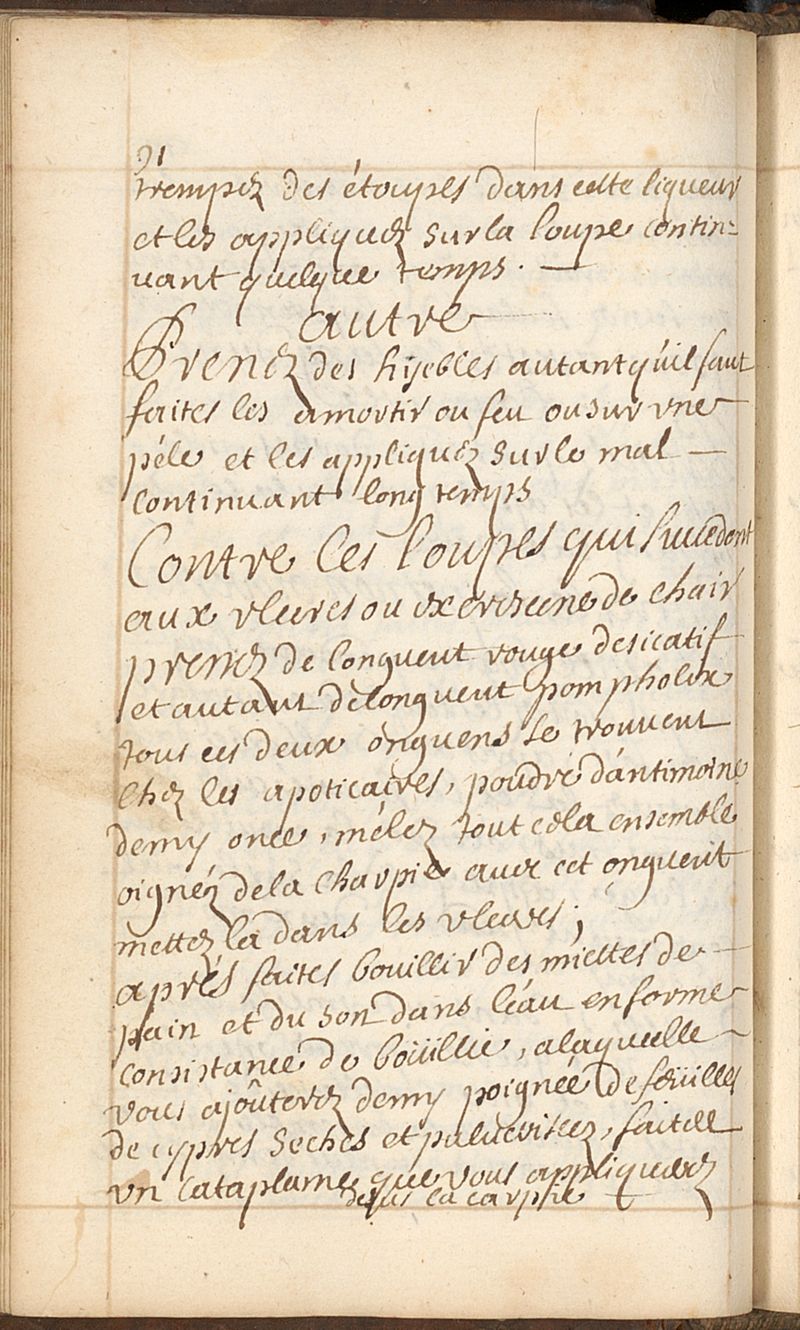 91
trempez des étoupes dans cette liqueur
et les appliquez sur la loupe contin=
uant quelque temps. —
autre
Prenez des hyebles autant qu'il faut
faites les amortir ou feu ou sur vne
péle et les appliquez sur le mal —
continuant long temps
Contre les loupes qui succedent
aux vlceres ou de chair
prenez de l'onguent rouge desicatif
et autant de l'onguent pompholix
tous ces deux onguens se trouvent
chez les apoticaires, poudre d'antimoine
demy once, mélez tout cela ensemble
oignéz de la charpie auec cet onguent
mettez la dans les vlceres;
aprés faites bouillir des miettes de —
pain et du son dans l'eau en forme
consistance de boüillie, a laquelle —
vous ajoûterez demy poignée de feüilles
de cypres seches et pulueriseez, faites
vn cataplame que vous appliquerez
dessus la carphie —